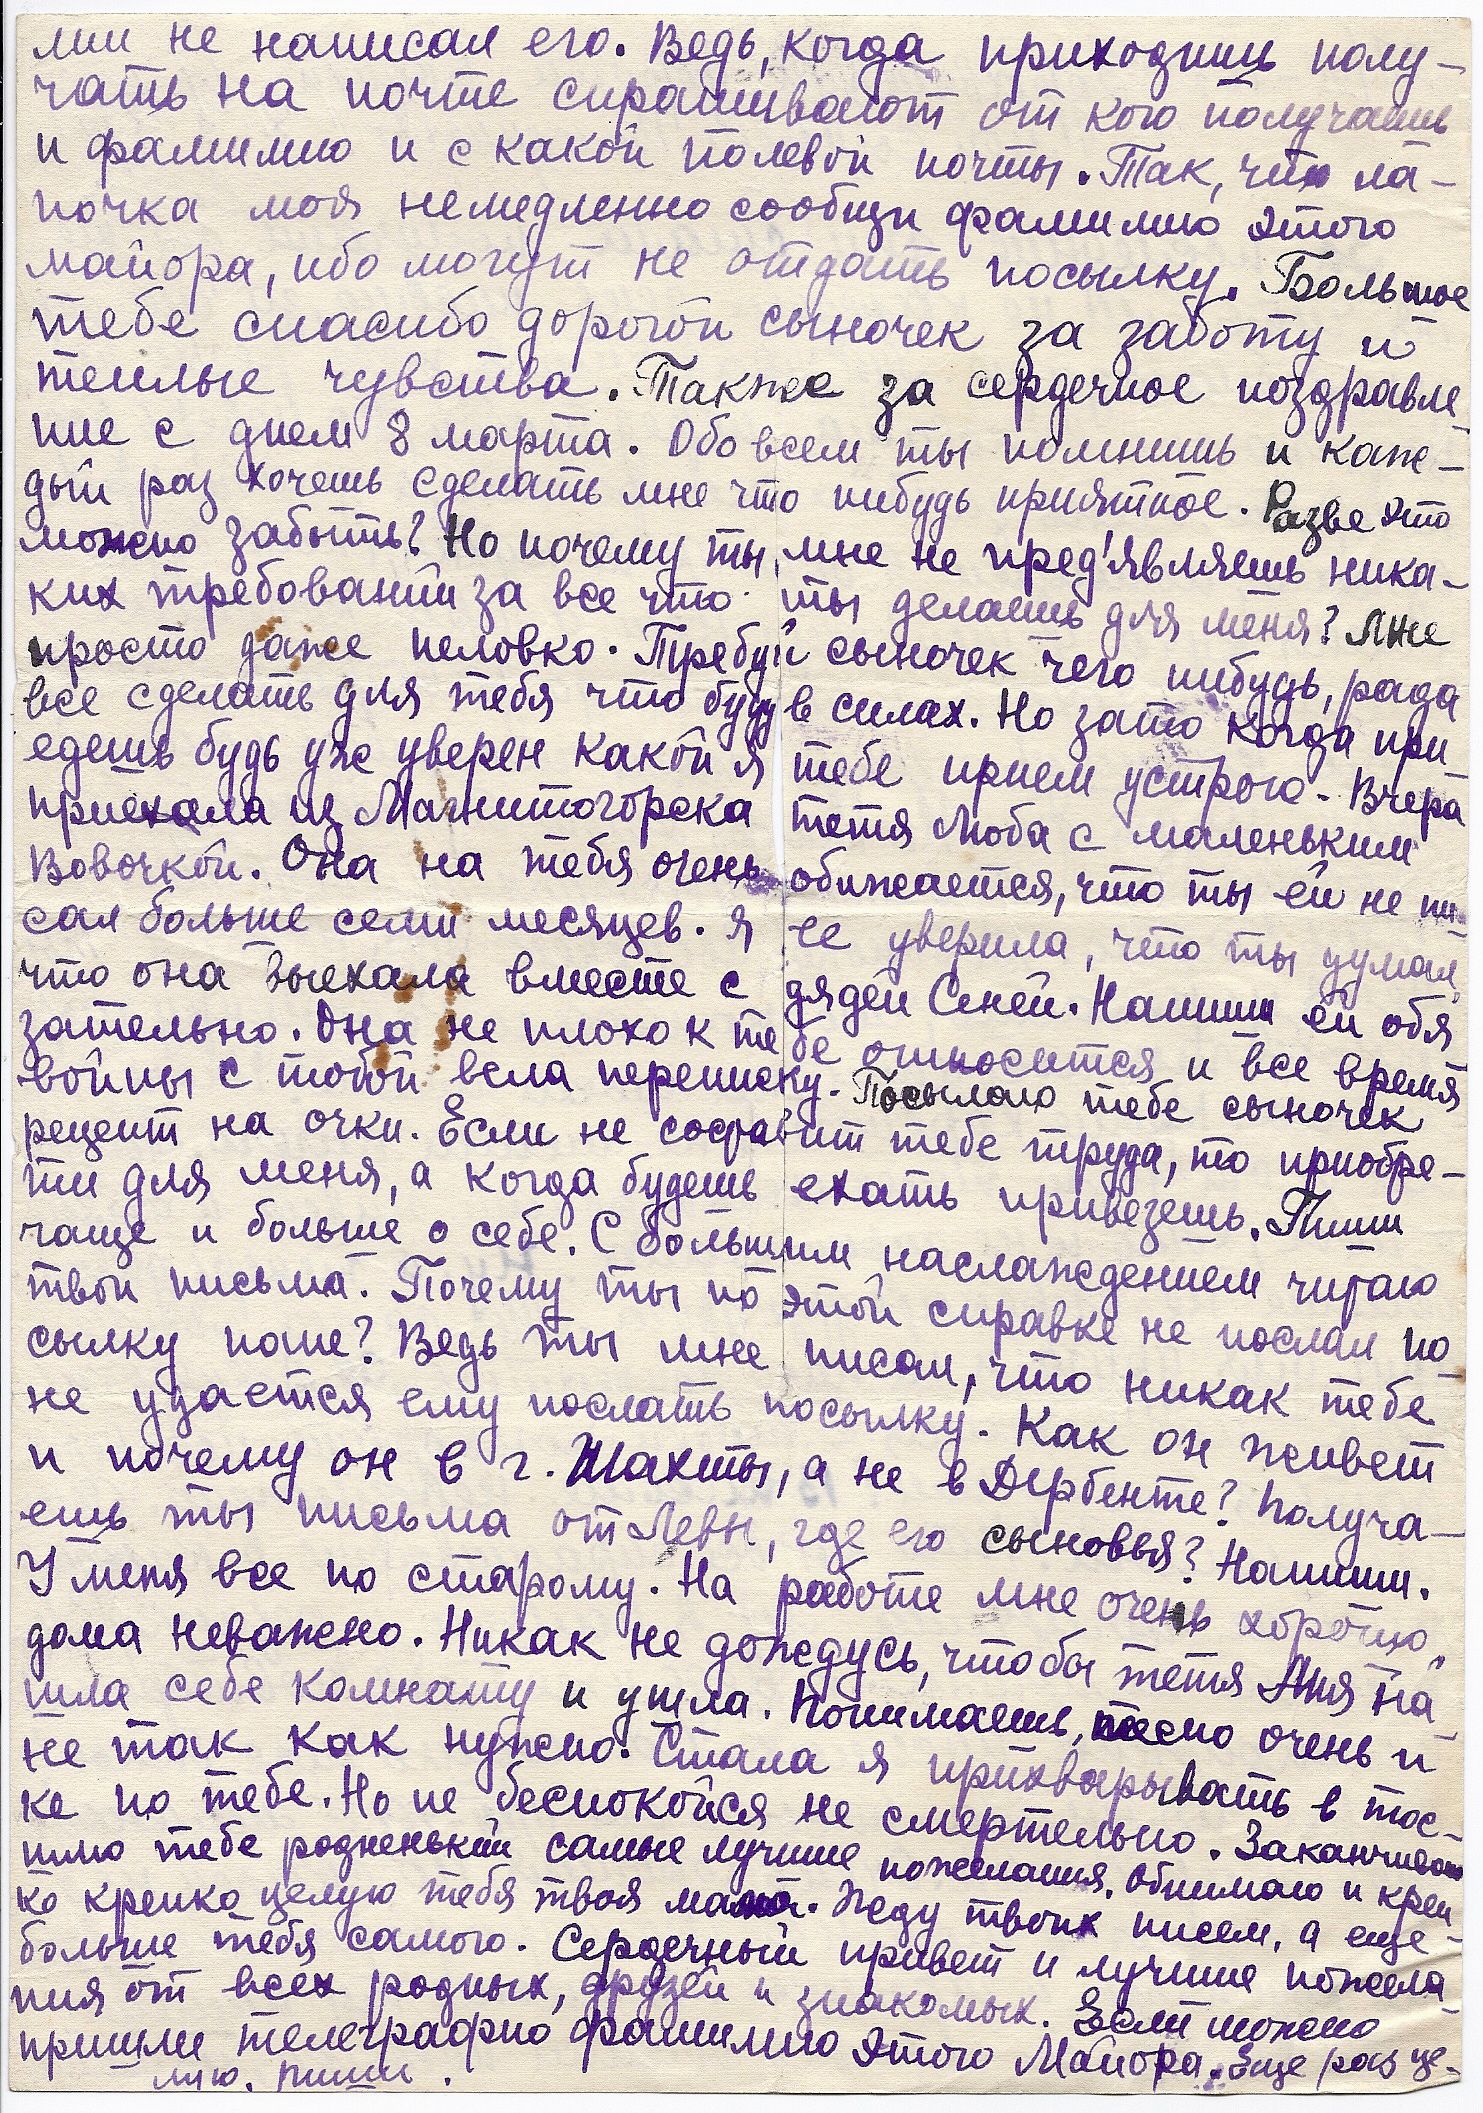 лии не написал его. Ведь, когда приходишь полу-
чать на почте спрашивают от кого получаешь
и фамилию и с какой полевой почты. Так, что ла-
почка моя немедленно сообщи фамилию этого
майора, ибо могут не отдать посылку. Большое
тебе спасибо дорогой сыночек за заботу и
теплые чувства. Также за сердечное поздравле
ние с днем 8 марта. Обо всем ты помнишь и каж-
дый раз хочешь сделать мне что нибудь приятное. Разве это
можно забыть? Но почему ты мне не пред'являешь ника-
ких требований за все что ты делаешь для меня? Мне
просто даже неловко. Требуй сыночек чего нибудь, рада
все сделать для тебя что буду в силах. Но зато когда при
едешь будь уж уверен какой я тебе прием устрою. Вчера
приехала из Магнитогорска тетя Люба с маленьким
Вовочкой. Она на тебя очень обижается, что ты ей не пи
сал больше семи месяцев. Я ее уверила, что ты думал,
что она выехала вместе с дядей Сеней. Напиши ей обя
зательно. Она не плохо к тебе относится и все время
войны с тобой вела переписку. Посылаю тебе сыночек
рецепт на очки. Если не составит тебе труда, то приобре-
ти для меня, а когда будешь ехать привезешь. Пиши
чаще и больше о себе. С большим наслаждением читаю
твои письма. Почему ты по этой справке не послал по
сылку папе? Ведь ты мне писал, что никак тебе
не удается ему послать посылку. Как он живет
и почему он в г. Шахты, а не в Дербенте? Получа-
ешь ты письма от Левы, где его сыновья? Напиши.
У меня все по старому. На работе мне очень хорошо
дома неважно. Никак не дождусь, чтобы тетя Аня на-
шла себе комнату и ушла. Понимаешь, тесно очень и
не так как нужно. Стала я прихварывать в тос-
ке по тебе. Но не беспокойся не смертельно. Заканчиваю
шлю тебе родненький самые лучшие пожелания. Обнимаю и креп
ко крепко целую тебя твоя мама. Жду твоих писем, а еще
больше тебя самого. Сердечный привет и лучшие пожела-
ния от всех родных, друзей и знакомых. Если можно
пришли телеграфно фамилию этого Майора. Еще раз це-
лую. Пиши.